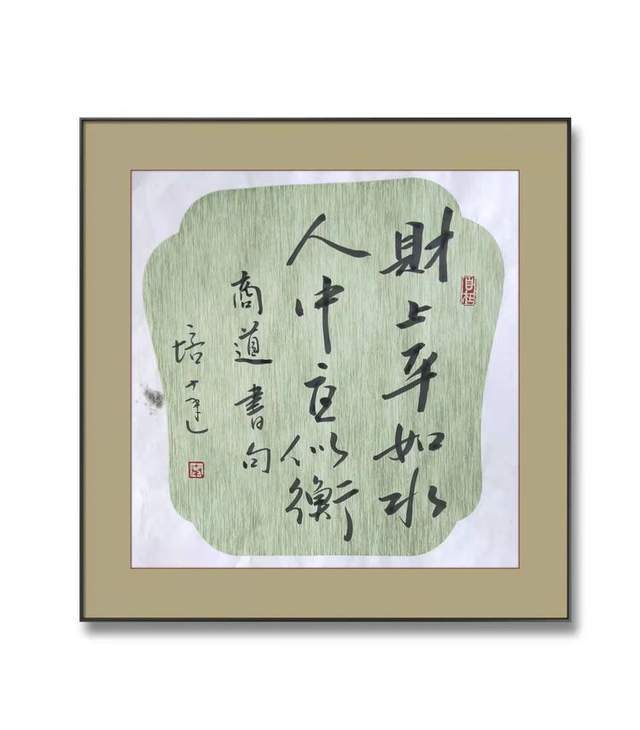 財上平如水
人中直似衡
商道書句
培